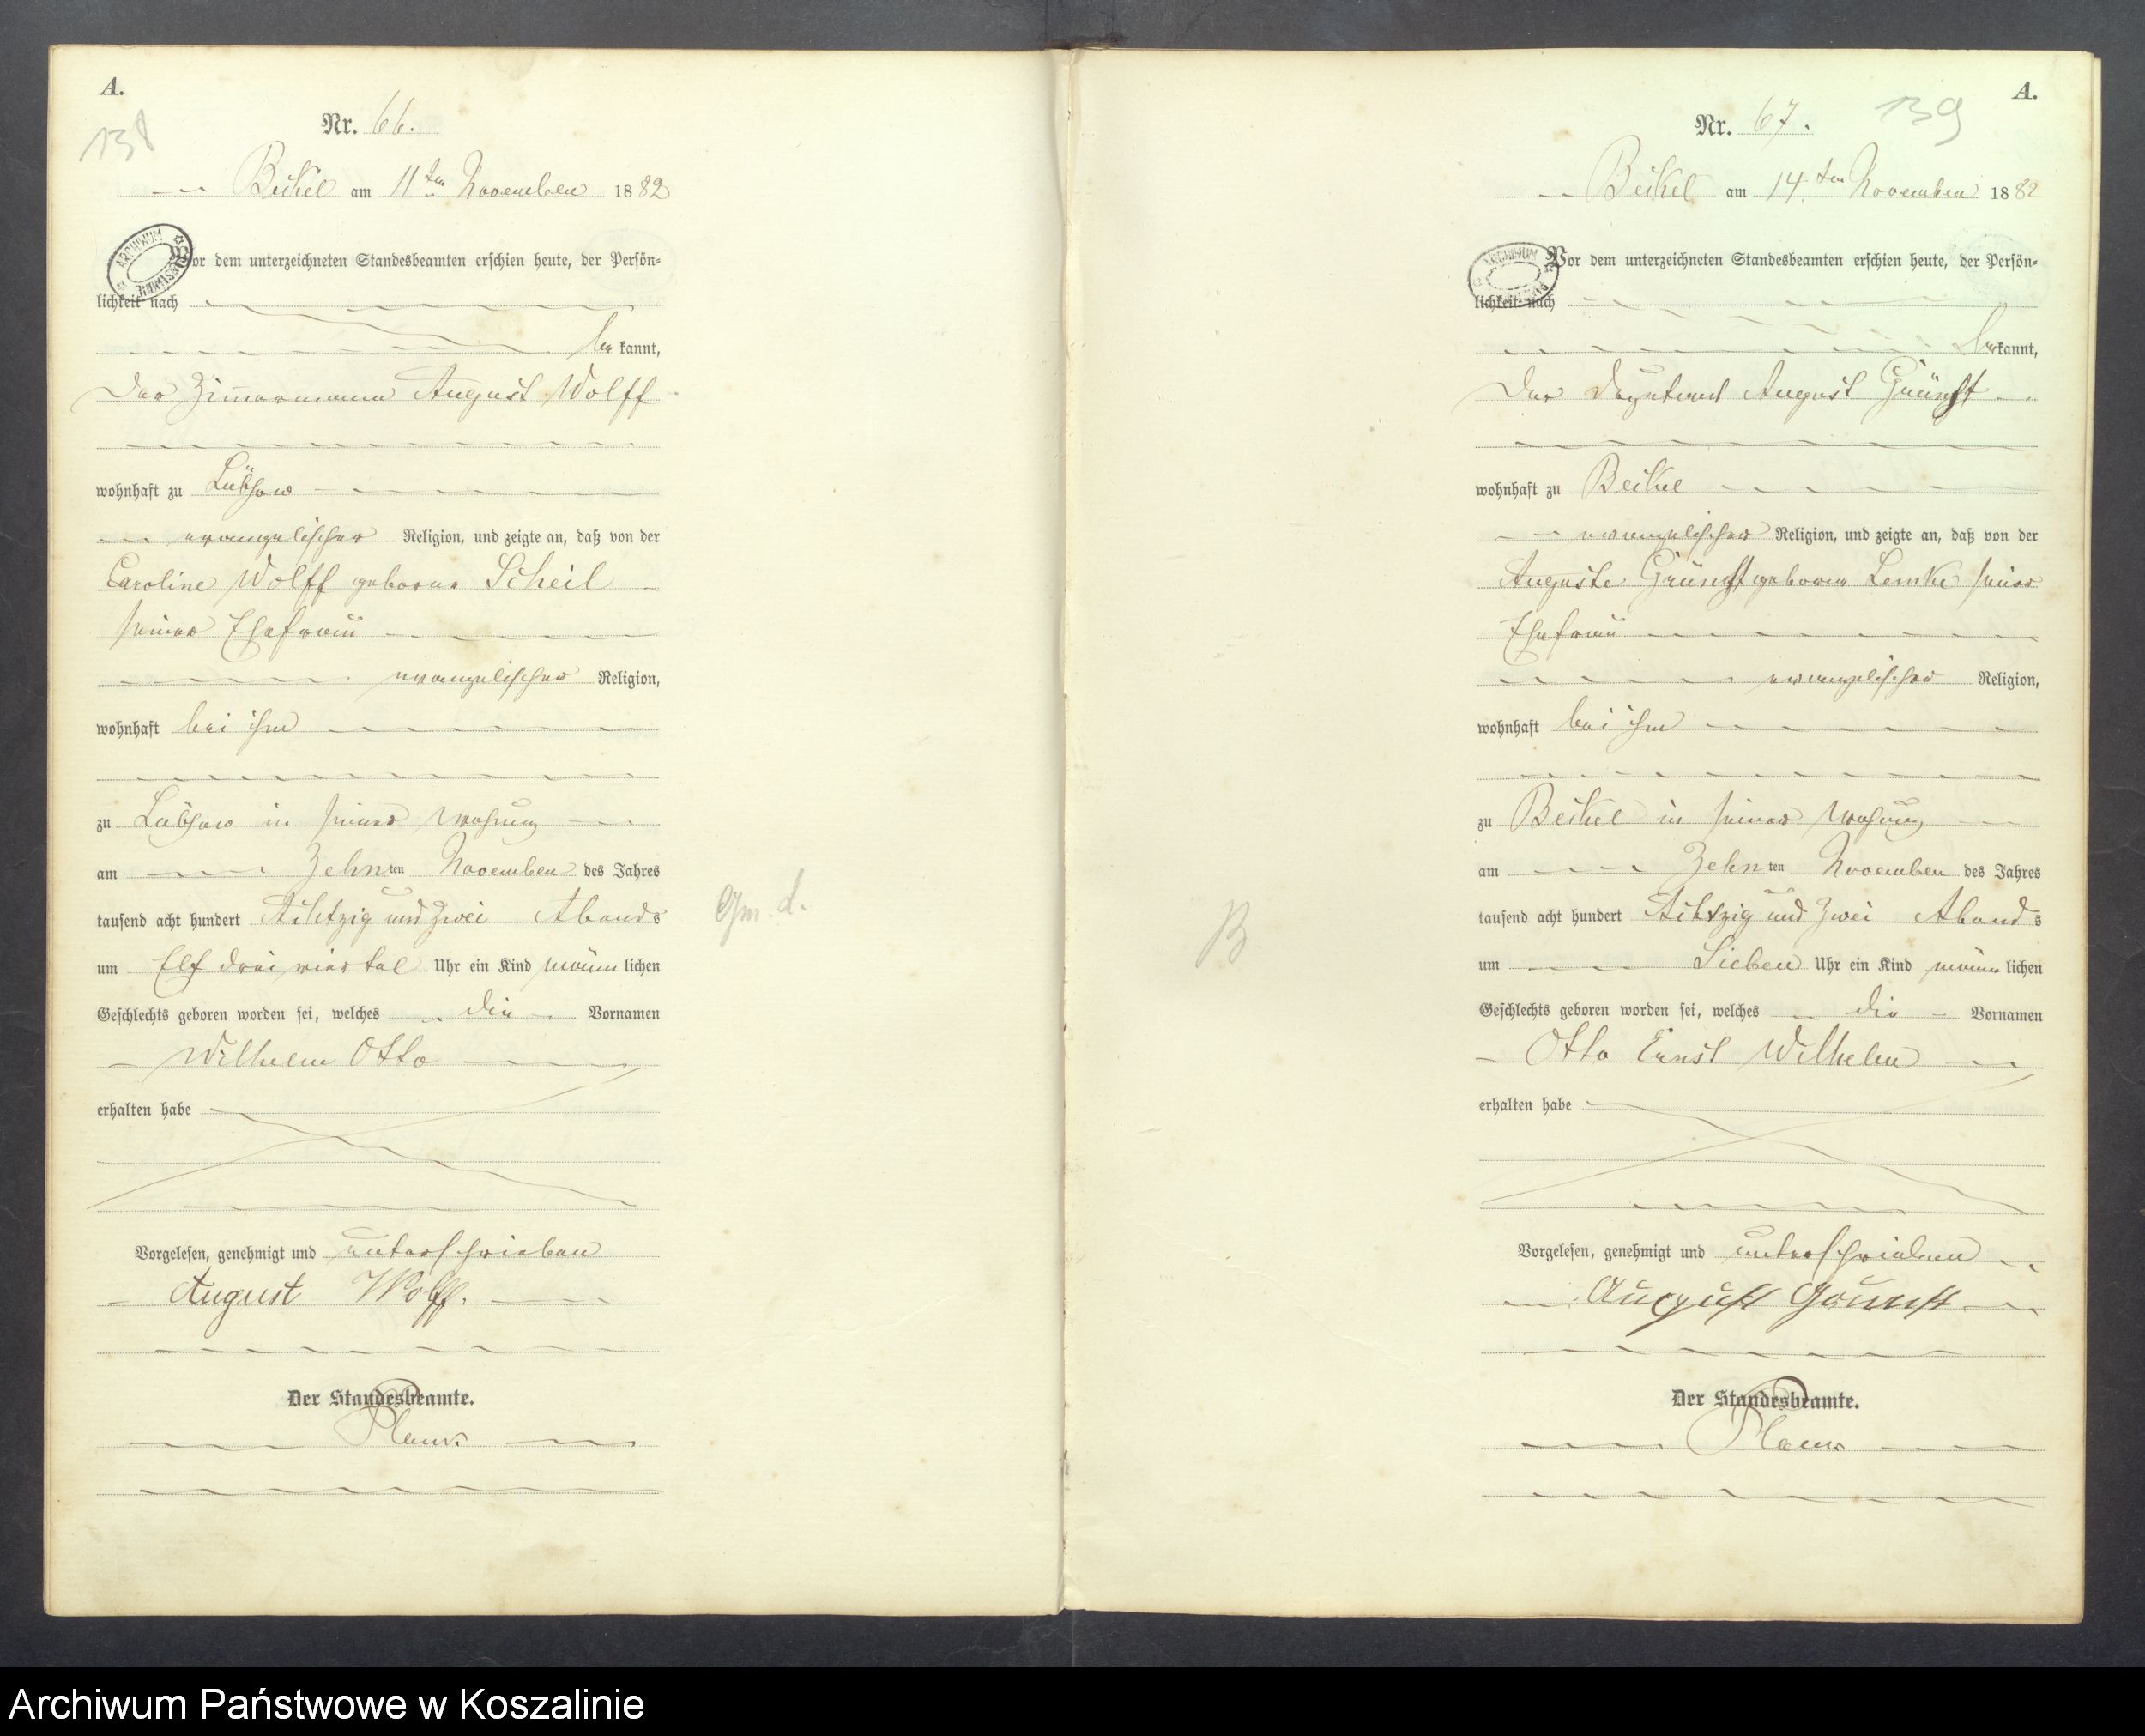 A.
138
Nr. 66.
Beikel am 11ten November 1882
ARCHIWUM
Vor dem unterzeichneten Standesbeamten erschien heute, der Persön-
lichkeit nach
be kannt,
der Zimmermann August Wolff
wohnhaft zu Lübsow
evangelischer Religion, und zeigte an, daß von der
Caroline Wolff geborne Scheil
seiner Ehefrau
evangelischer Religion,
wohnhaft bei ihm
zu Lübsow in seiner Wohnung
am Zehn ten November des Jahres
tausend acht hundert Achtzig und Zwei Abends
um Elf drei viertel Uhr ein Kind männ lichen
Geschlechts geboren worden sei, welches die Vornamen
Wilhelm Otto
erhalten habe
Vorgelesen, genehmigt und unterschrieben
August Wolff.
Der Standesbeamte.
A.
139
Nr. 67.
Beikel am 14ten November 1882
ARCHIWUM
Vor dem unterzeichneten Standesbeamten erschien heute, der Persön-
lichkeit nach
be kannt,
der August Grünst
wohnhaft zu Beikel
evangelischer Religion, und zeigte an, daß von der
Auguste Grünst geborne Lemke seiner
Ehefrau
evangelischer Religion,
wohnhaft bei ihm
zu Beikel in seiner Wohnung
am Zehn ten November des Jahres
tausend acht hundert Achtzig und Zwei Abends
um Sieben Uhr ein Kind männ lichen
Geschlechts geboren worden sei, welches die Vornamen
Otto Ernst Wilhelm
erhalten habe
B
Vorgelesen, genehmigt und unterschrieben
August Grunst
Der Standesbeamte.
Archiwum Państwowe w Koszalinie